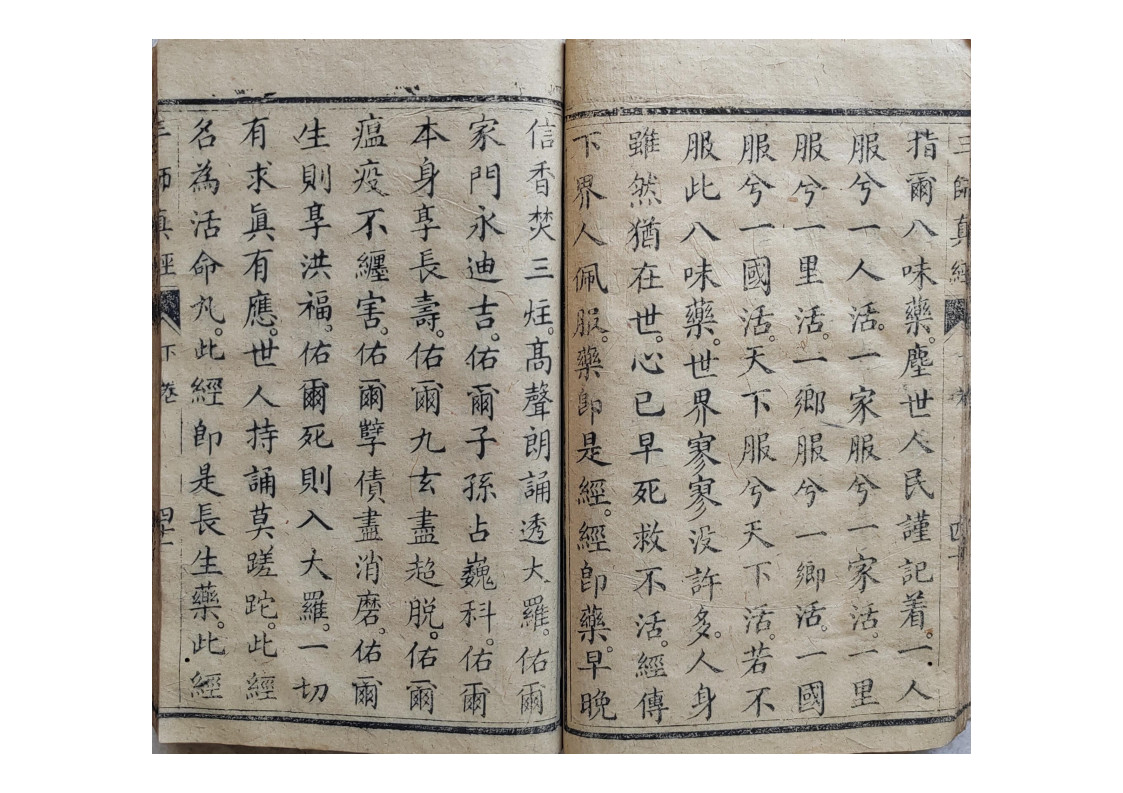 三師真經 下卷 四十
指爾八味藥。塵世人民謹記着。一人
服兮一人活。一家服兮一家活。一里
服兮一里活。一鄉服兮一鄉活。一國
服兮一國活。天下服兮天下活。若不
服此八味藥。世界寥寥沒許多。人身
雖然猶在世。心已早死救不活。經傳
下界人佩服。藥卽是經。經卽藥。早晚
信香焚三炷。高聲朗誦透大羅。佑爾
家門永迪吉。佑爾子孫占巍科。佑爾
本身享長壽。佑爾九玄盡超脫。佑爾
瘟疫不纏害。佑爾孽債盡消磨。佑爾
生則享洪福。佑爾死則入大羅。一切
有求眞有應。世人持誦莫蹉跎。此經
名為活命丸。此經卽是長生藥。此經
三師真經 下卷 四十一